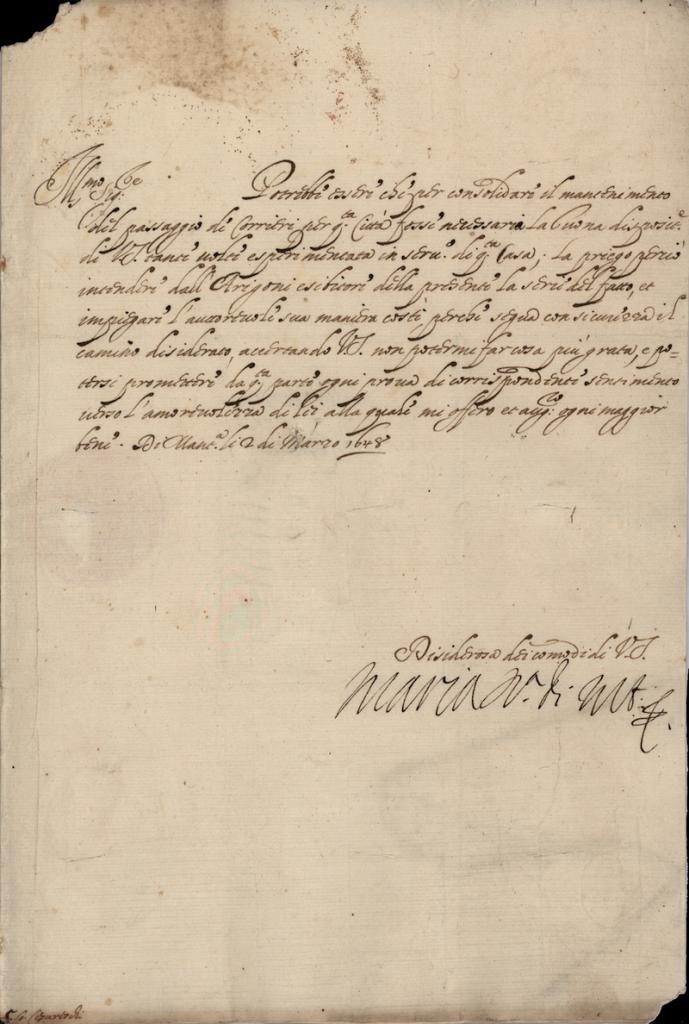 Ill.mo Sig.re Potrebbe essere che per consolidare il mantenimento
del passaggio de Corrieri per q.ta Città fosse necessaria la buona disposit.e
di V.S. tante volte esperimentata in serv.o di q.ta Casa; la priego perciò
intendere dall'Arigoni esibitore della presente la serie del fatto, et
impiegare l'autorevole sua maniera costì perche segua con sicurezza il
camino disiderato, accertando V.S. non potermi far cosa più grata, e po=
tersi promettere da q.ta parte ogni prova di corrispondente sentimento
verso l'amorevolezza di lei alla quale mi offero et aug.co ogni maggior
bene. Di Mant.a li 2 di Marzo 1648
Disiderosa dei comodi di V.S.
Maria